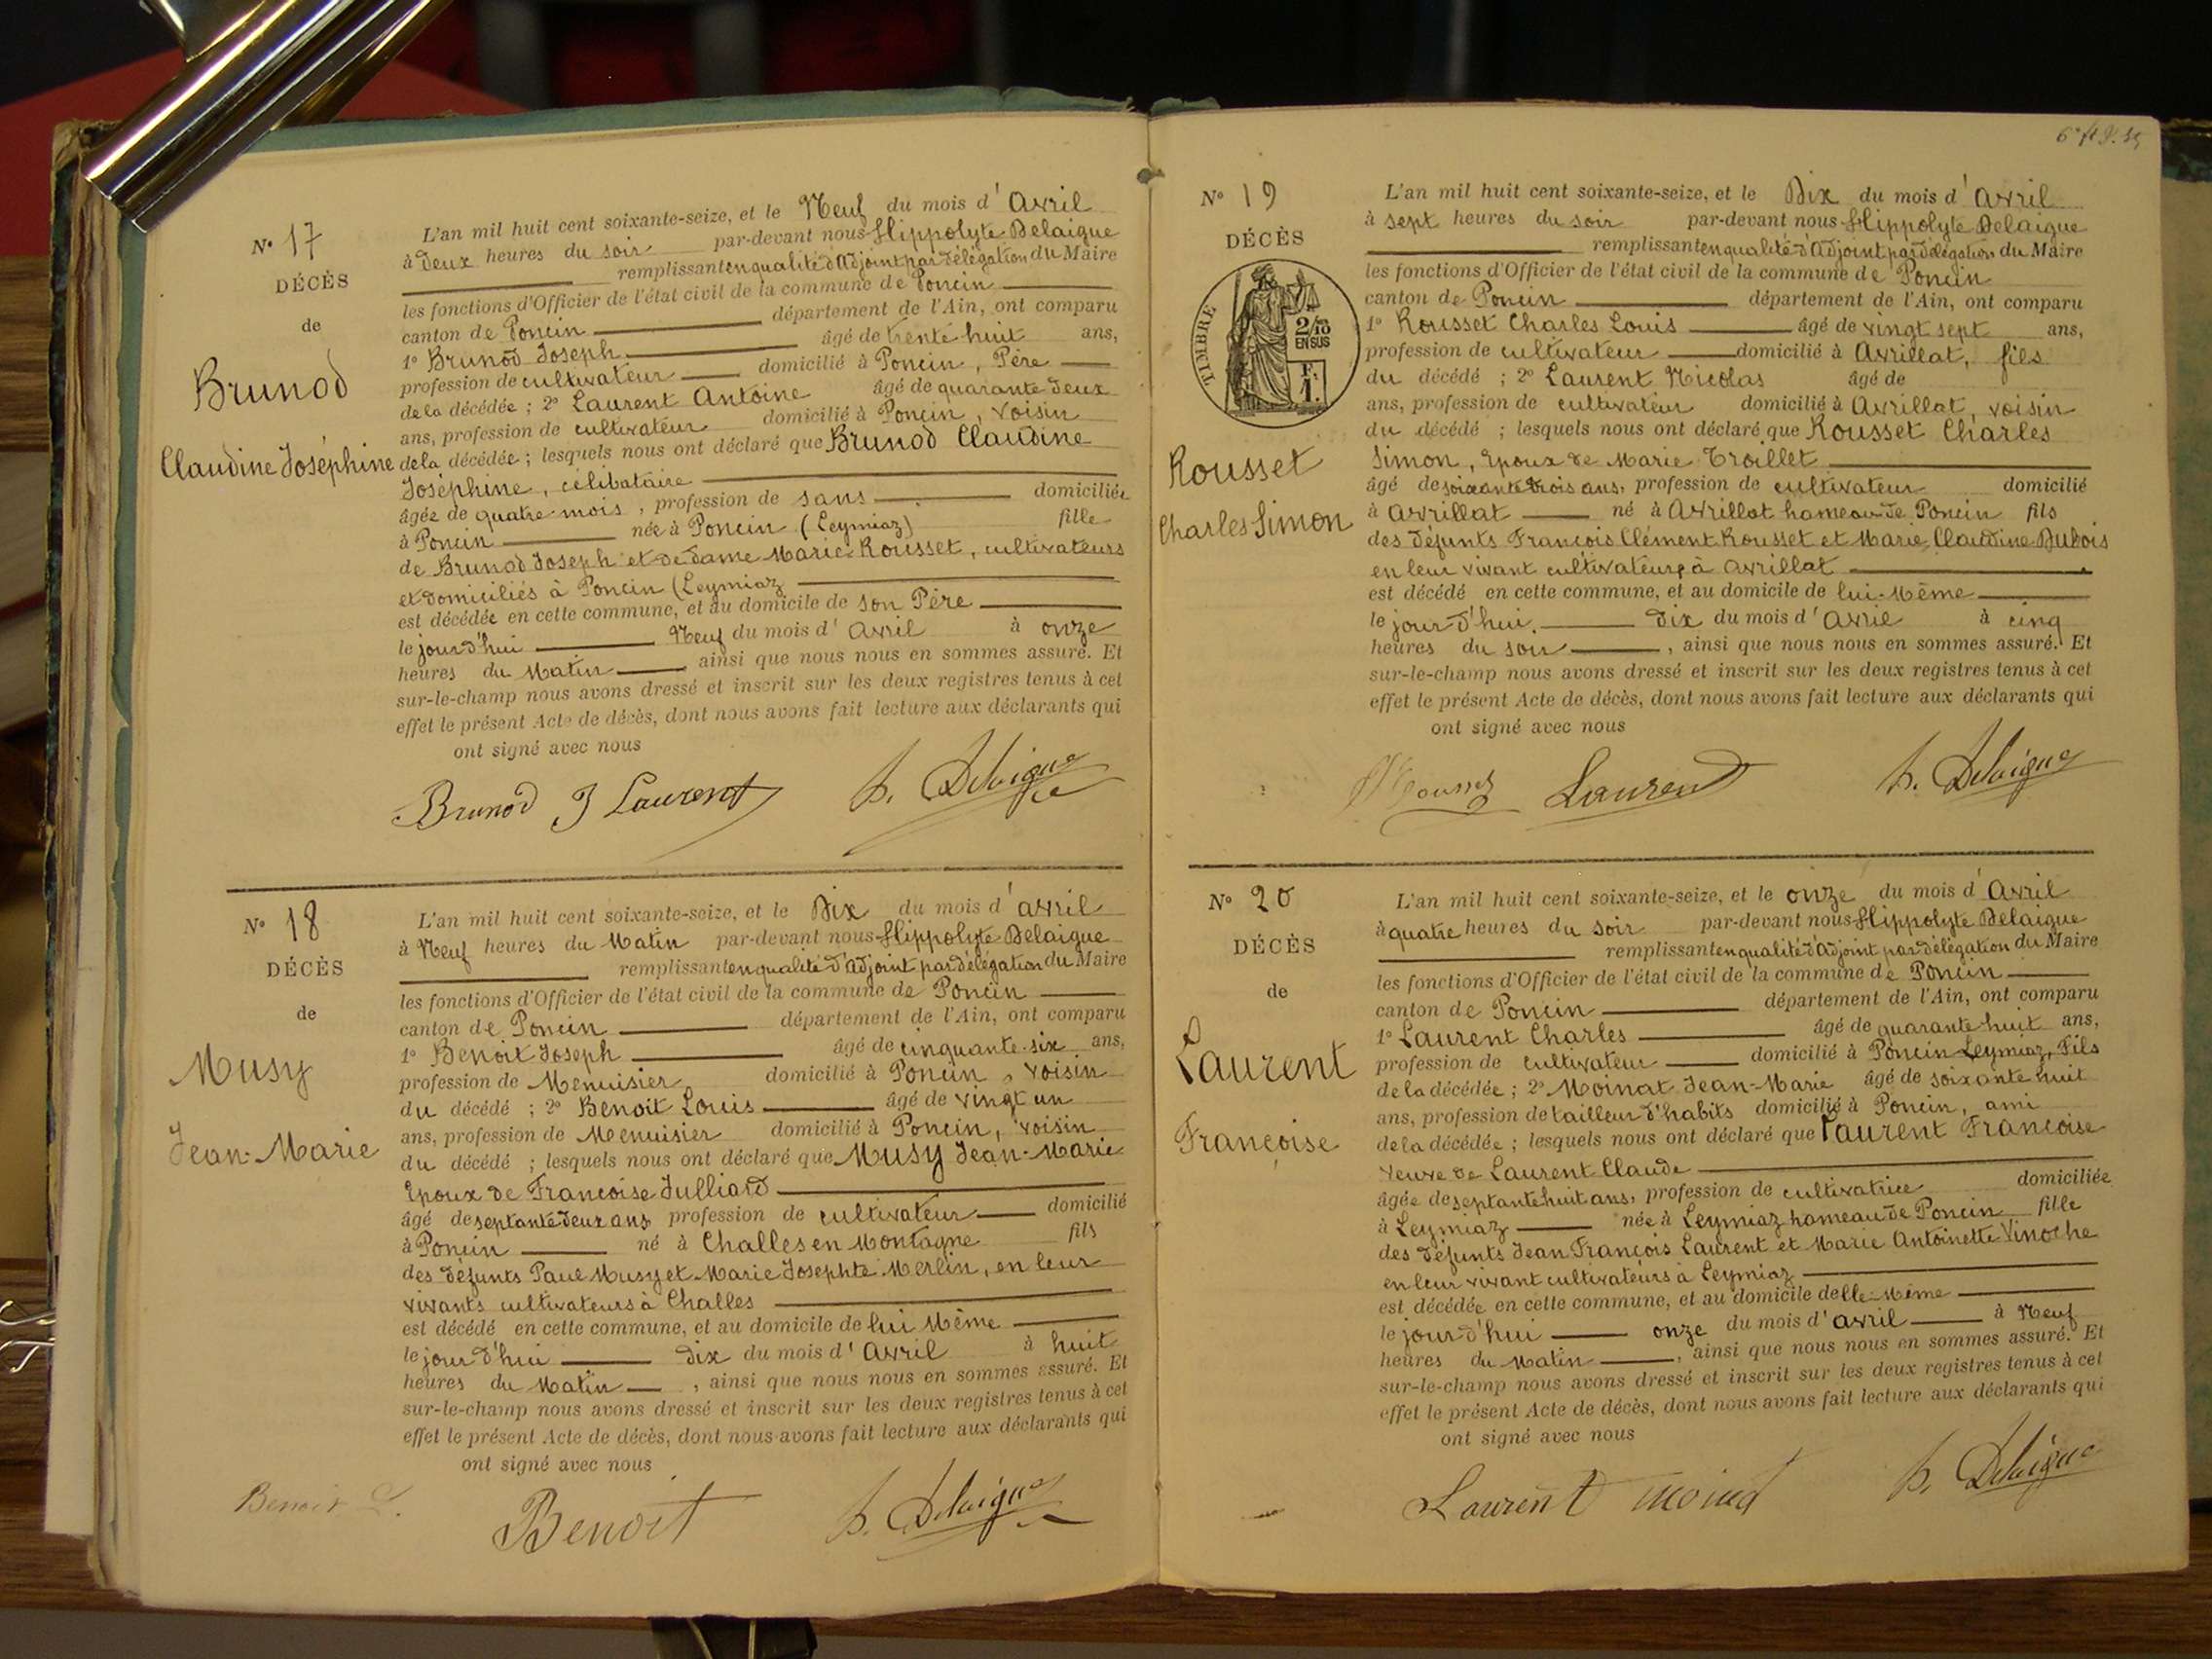 N° 17
DÉCÈS
de
Brunod
Claudine Joséphine
L'an mil huit cent soixante-seize, et le Neuf du mois d'Avril
à Deux heures du soir par-devant nous Hippolyte Delaigue
remplissant en qualité d'Adjoint par délégation du Maire
les fonctions d'Officier de l'état civil de la commune de Poncin
canton de Poncin département de l'Ain, ont comparu
1° Brunod Joseph âgé de trente huit ans,
profession de cultivateur domicilié à Poncin, Père
de la décédée ; 2° Laurent Antoine âgé de quarante deux
ans, profession de cultivateur domicilié à Poncin, voisin
de la décédée ; lesquels nous ont déclaré que Brunod Claudine
Joséphine, célibataire
âgée de quatre mois, profession de sans domiciliée
à Poncin née à Poncin (Leymiaz) fille
de Brunod Joseph et de dame Marie Rousset, cultivateurs
et domiciliés à Poncin (Leymiaz
est décédée en cette commune, et au domicile de son Père
le jour d'hui Neuf du mois d'Avril à onze
heures du Matin, ainsi que nous nous en sommes assuré. Et
sur-le-champ nous avons dressé et inscrit sur les deux registres tenus à cet
effet le présent Acte de décès, dont nous avons fait lecture aux déclarants qui
ont signé avec nous
Brunod J Laurent h. Delaigue
N° 18
DÉCÈS
de
Musy
Jean-Marie
L'an mil huit cent soixante-seize, et le Dix du mois d'avril
à Neuf heures du Matin par-devant nous Hippolyte Delaigue
remplissant en qualité d'Adjoint par délégation du Maire
les fonctions d'Officier de l'état civil de la commune de Poncin
canton de Poncin département de l'Ain, ont comparu
1° Benoit Joseph âgé de cinquante-six ans,
profession de Menuisier domicilié à Poncin, voisin
du décédé ; 2° Benoit Louis âgé de vingt un
ans, profession de Menuisier domicilié à Poncin, voisin
du décédé ; lesquels nous ont déclaré que Musy Jean-Marie
Epoux de Françoise Julliard
âgé de septante deux ans profession de cultivateur domicilié
à Poncin né à Challes en Montagne fils
des défunts Paul Musy et Marie Josephte Merlin, en leur
vivants cultivateurs à Challes
est décédé en cette commune, et au domicile de lui Même
le jour d'hui dix du mois d'Avril à huit
heures du Matin, ainsi que nous nous en sommes assuré. Et
sur-le-champ nous avons dressé et inscrit sur les deux registres tenus à cet
effet le présent Acte de décès, dont nous avons fait lecture aux déclarants qui
ont signé avec nous
Benoit L. Benoit h. Delaigue
N° 19
DÉCÈS
TIMBRE
2/10
EN SUS
F.
1.
Rousset
Charles Simon
L'an mil huit cent soixante-seize, et le Dix du mois d'Avril
à sept heures du soir par-devant nous Hippolyte Delaigue
remplissant en qualité d'Adjoint par délégation du Maire
les fonctions d'Officier de l'état civil de la commune de Poncin
canton de Poncin département de l'Ain, ont comparu
1° Rousset Charles Louis âgé de vingt sept ans,
profession de cultivateur domicilié à Avrillat, fils
du décédé ; 2° Laurent Nicolas âgé de
ans, profession de cultivateur domicilié à Avrillat, voisin
du décédé ; lesquels nous ont déclaré que Rousset Charles
Simon, Epoux de Marie Troillet
âgé de soixante trois ans, profession de cultivateur domicilié
à Avrillat né à Avrillat hameau de Poncin fils
des défunts François Clément Rousset et Marie Claudine Dubois
en leur vivant cultivateurs à avrillat
est décédé en cette commune, et au domicile de lui-Même
le jour d'hui, dix du mois d'Avril à cinq
heures du soir, ainsi que nous nous en sommes assuré. Et
sur-le-champ nous avons dressé et inscrit sur les deux registres tenus à cet
effet le présent Acte de décès, dont nous avons fait lecture aux déclarants qui
ont signé avec nous
Laurent h. Delaigue
N° 20
DÉCÈS
de
Laurent
Françoise
L'an mil huit cent soixante-seize, et le onze du mois d'Avril
à quatre heures du soir par-devant nous Hippolyte Delaigue
remplissant en qualité d'Adjoint par délégation du Maire
les fonctions d'Officier de l'état civil de la commune de Poncin
canton de Poncin département de l'Ain, ont comparu
1° Laurent Charles âgé de quarante huit ans,
profession de cultivateur domicilié à Poncin Leymiaz, Fils
de la décédée ; 2° Moinat Jean-Marie âgé de soixante huit
ans, profession de tailleur d'habits domicilié à Poncin, ami
de la décédée ; lesquels nous ont déclaré que Laurent Françoise
veuve de Laurent Claude
âgée de septante huit ans, profession de cultivatrice domiciliée
à Leymiaz née à Leymiaz hameau de Poncin fille
des défunts Jean François Laurent et Marie Antoinette Vinoche
en leur vivant cultivateurs à Leymiaz
est décédée en cette commune, et au domicile delle-même
le jour d'hui onze du mois d'avril à Neuf
heures du Matin, ainsi que nous nous en sommes assuré. Et
sur-le-champ nous avons dressé et inscrit sur les deux registres tenus à cet
effet le présent Acte de décès, dont nous avons fait lecture aux déclarants qui
ont signé avec nous
Laurent Moinat h. Delaigue